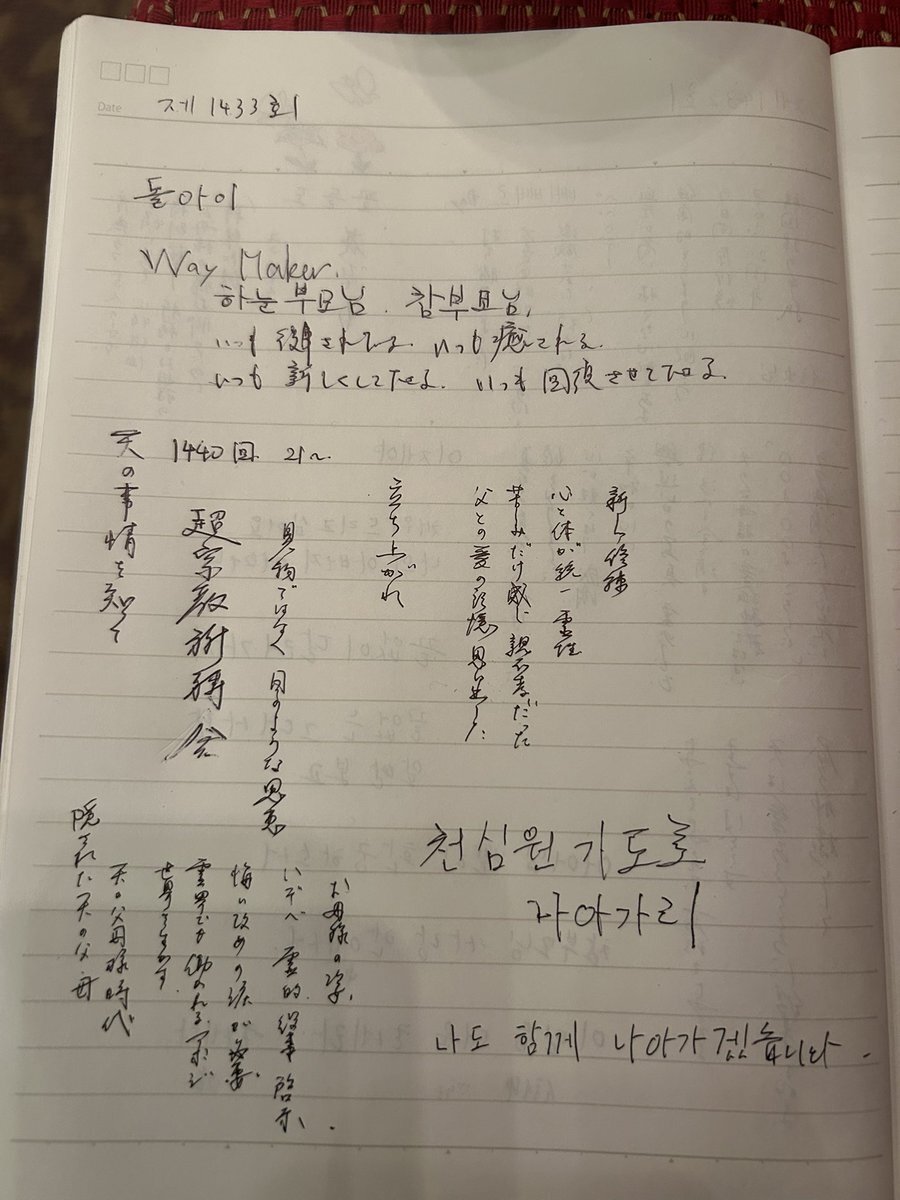 Date
제 1433회
돌아이
Way Maker.
하늘부모님. 참부모님.
いつも復帰される. いつも癒される.
いつも新しくして下さる. いつも回復させて下さる.
1440回. 21~
天の事情を知って
新しい修練
心と体が統一 霊性
苦しみだけ感じ親不孝だった
父との愛の記憶 思い出した
立ち上がれ
見物ではなく 自のような恩恵
超宗教祈祷会
천심원 기도로
나아가리
お母様の涙、
いずべ 霊的 役事 啓示、.
悔い改めの涙が必要.
霊界でも働かれる
世界
天の父母様時代
隠された天の父母
나도 함께 나아가겠습니다.